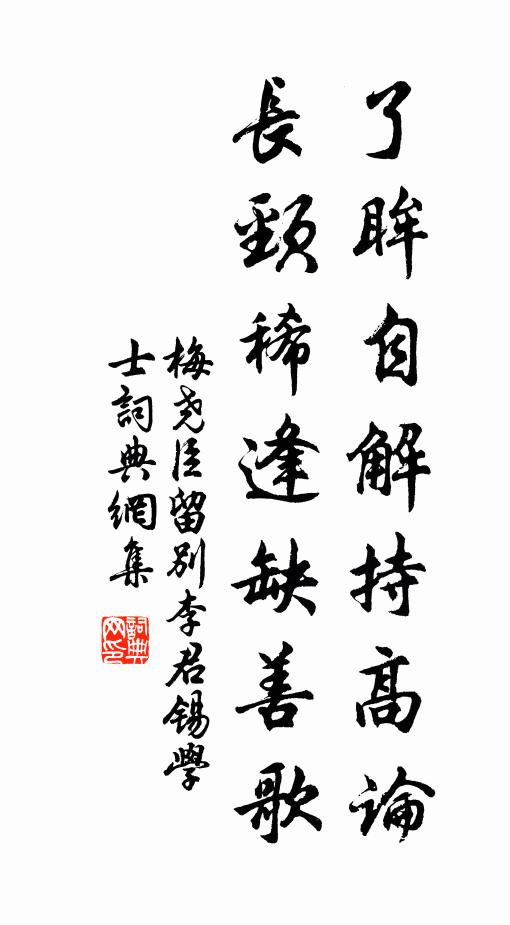 了眸自解持高論
長頸稀逢缺善歌
梅尧臣留别李君錫學
士詞典網集
詞典网印